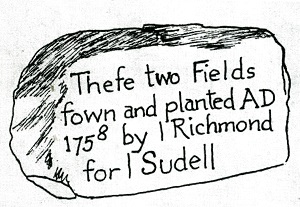 Thefe two Fields
fown and planted AD
1758 by I Richmond
for I Sudell